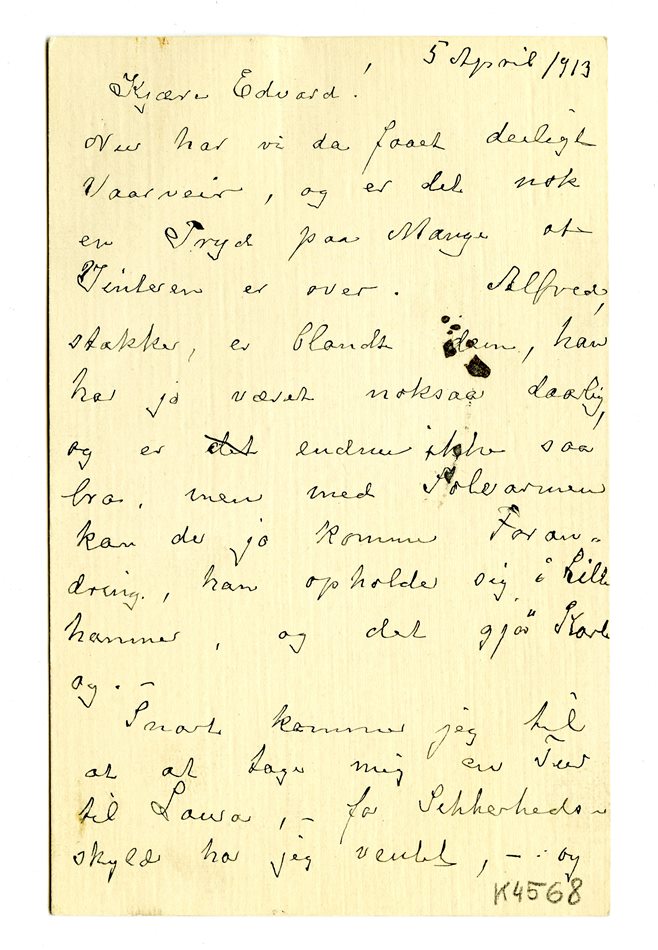 5 April 1913
Kjære Edvard!
Nu har vi da faaet deiligt
Vaarveir, og er det nok
en Fryd paa Mange at
Vinteren er over. Alfred,
stakker, er blandt dem, han
har jo været noksaa daarlig,
og er det endnu ikke saa
bra, men med Solvarmen
kan de jo komme Foran-
dring, han opholde sig i Lille
hammer, og det gjør Karl
og. —
Snart kommer jeg til
at at tage mig en Tur
til Laura, — for Sikkerheds-
skyld har jeg ventet, — og
K4568